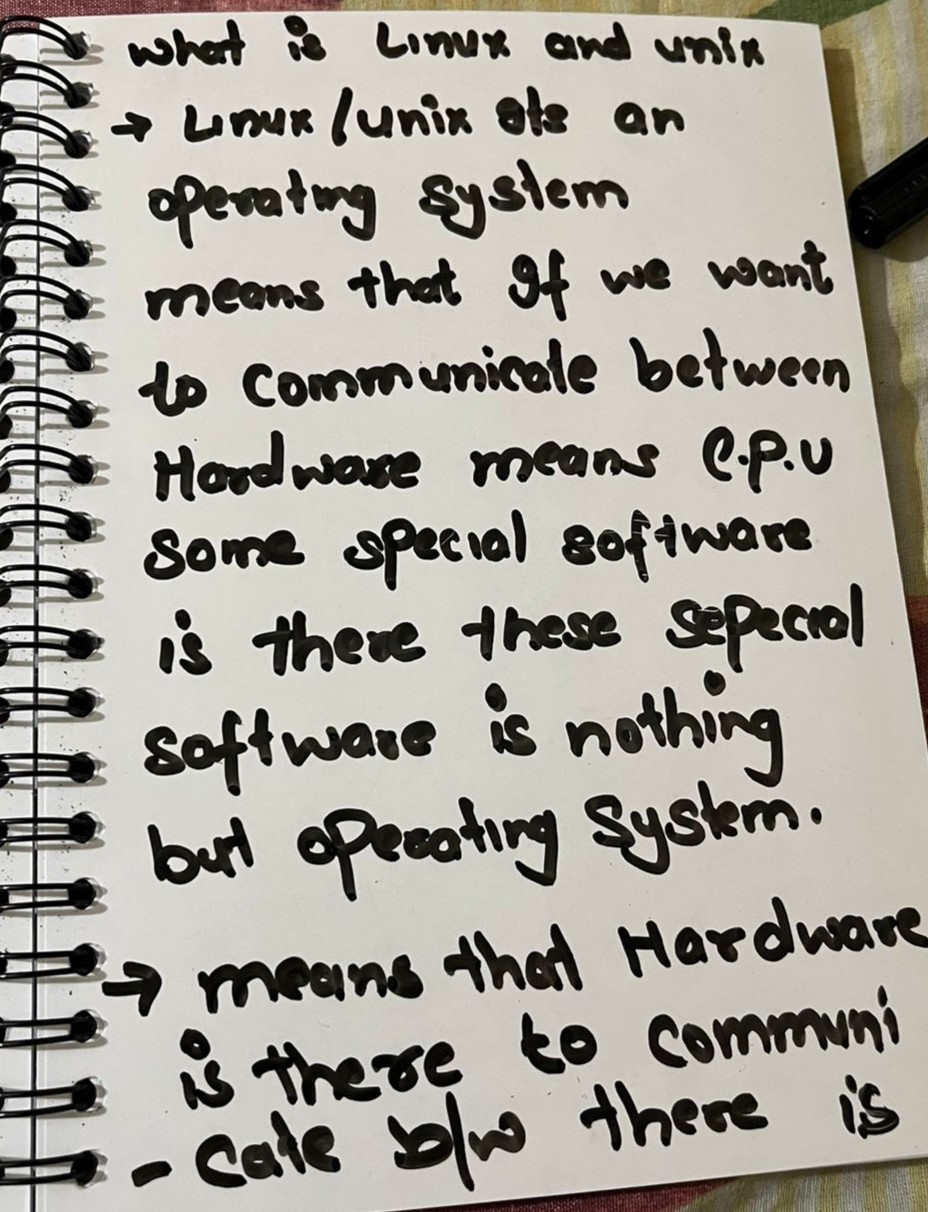 what is Linux and unix
→ Linux/unix is an
operating system
means that If we want
to communicate between
Hardware means C.P.U
some special software
is there these sepecial
software is nothing
but operating System.
→ means that Hardware
is there to communi
- cate b/w there is